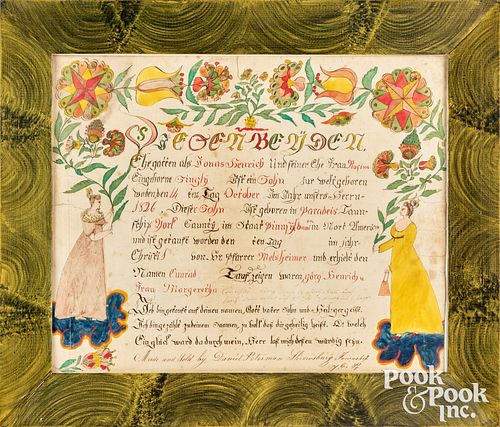 DIESEN BEYDEN
Ehegatten als Jonas Henrich Und seiner Ehe Frau Regina
Eingeborne Singly Ist ein Sohn zur welt geboren
worden den 14 ten Tag October im Jahr unsers Herrn
1826 Dieser Sohn Ist geboren in Paradeis Taun-
schip York County im Staat Pinnsylvani in Nort America
und ist getauft worden den ten Tag im jahr
Christi von Hr Pfarrer Melsheimer und erhielt den
Namen Conrad Taufzeigen waren Görg Henrich
Frau Margaretha
Ich bin getauft auf deinen namen, Gott vater Sohn und Heilger geist.
Ich bin gezählt zu deinem Saamen, zu Volk das dir geheilig heist. O! welch
Ein glück ward da durch mein, Herr las mich dessen würdig seyn
Made and sold by Daniel Peterman Shrewsbury Township
Y. C. P
POOK
& POOK
Inc.